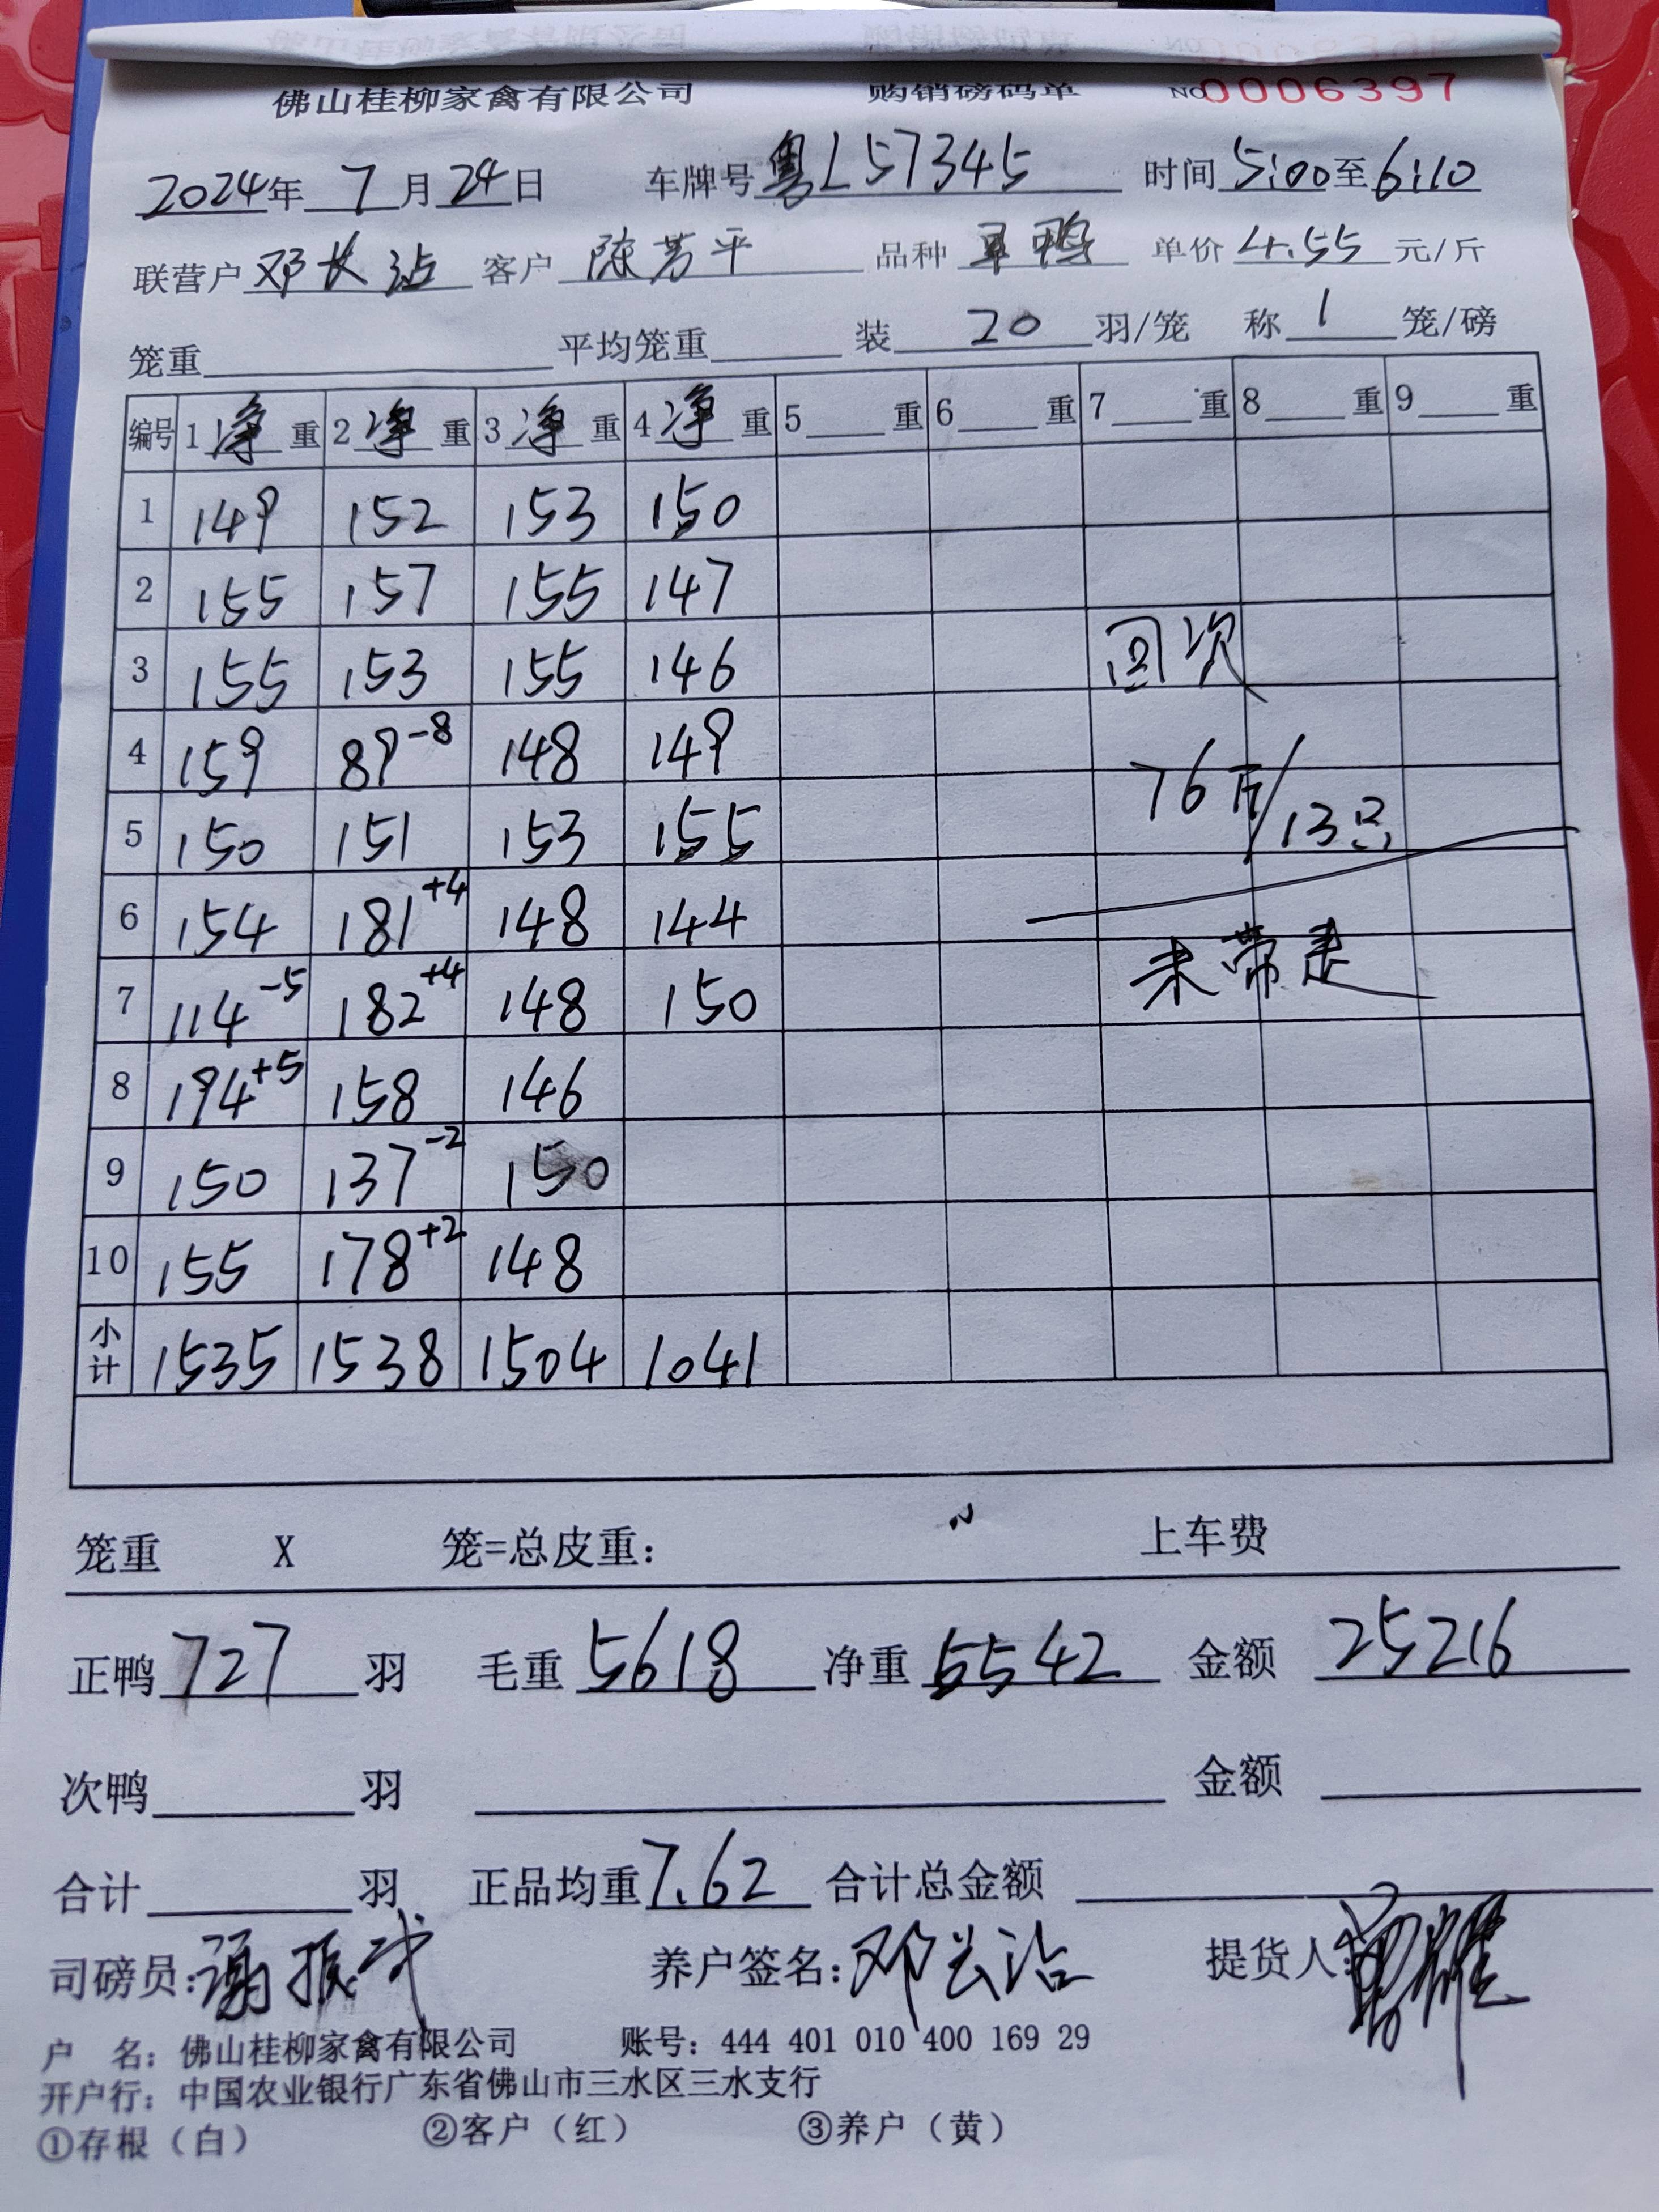 佛山桂柳家禽有限公司 购销磅码单 NO 0006397
2024年 7月 24日 车牌号 粤L57345 时间 5:00 至 6:10
联营户 邓长沾 客户 陈芳平 品种 单价 4.55 元/斤
笼重 平均笼重 装 20 羽/笼 称 1 笼/磅
编号 1 净 重 2 净 重 3 净 重 4 净 重 5 重 6 重 7 重 8 重 9 重
1 149 152 153 150
2 155 157 155 147
3 155 153 155 146 回次
4 159 89-8 148 149 76斤/13只
5 150 151 153 155
6 154 181+4 148 144
7 114-5 182+4 148 150 未带走
8 194+5 158 146
9 150 137-2 150
10 155 178+2 148
小计 1535 1538 1504 1041
笼重 X 笼=总皮重: 上车费
正鸭 727 羽 毛重 5618 净重 5542 金额 25216
次鸭 羽 金额
合计 羽 正品均重 7.62 合计总金额
司磅员: 养户签名: 邓长沾 提货人:
户 名: 佛山桂柳家禽有限公司 账号: 444 401 010 400 169 29
开户行: 中国农业银行广东省佛山市三水区三水支行
①存根（白） ②客户（红） ③养户（黄）